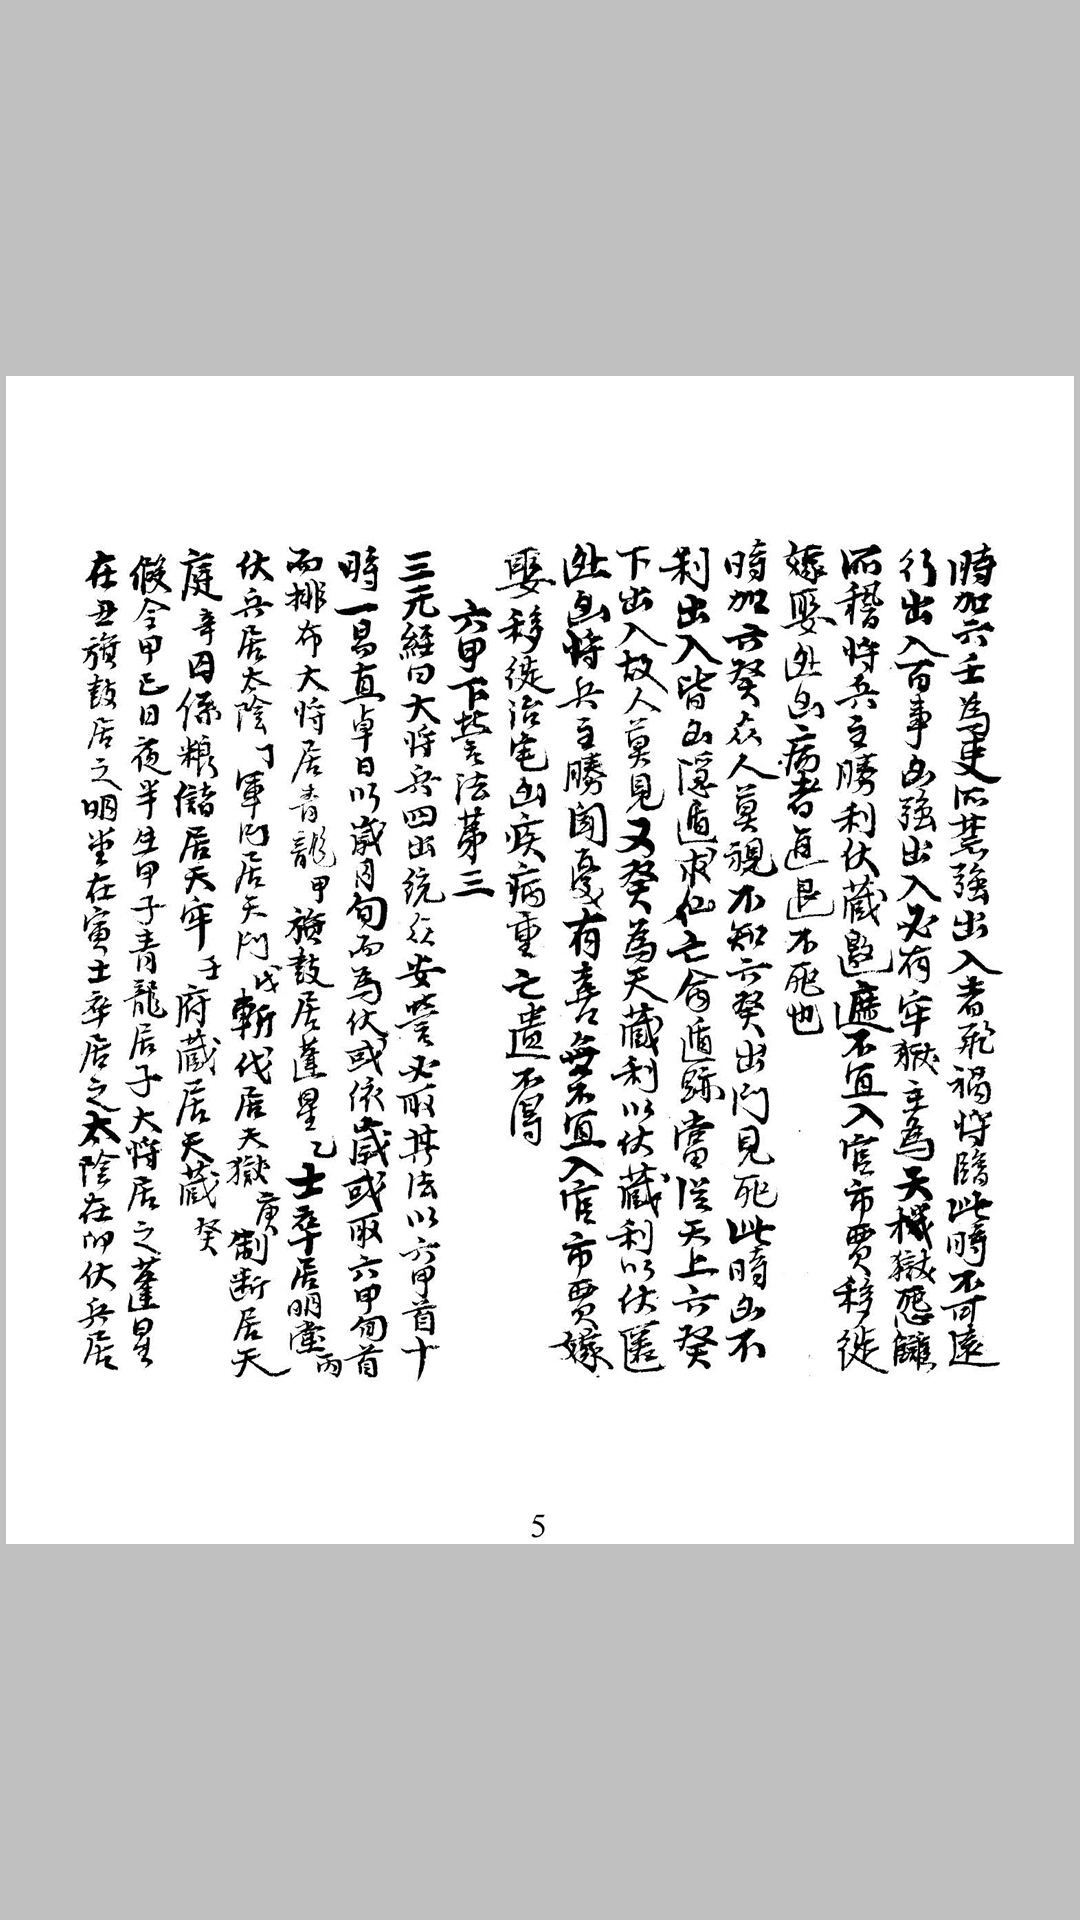 時加六壬為吏所苦強出入者飛禍將臨此時不可遠
行出入百事凶強出入必有牢獄主為天機獄怨讎
所稽將兵主勝利伏藏邀遮不宜入官市賈移徙
嫁娶並凶病者進退不死也
時加六癸衆人莫視不知六癸出門見死此時凶不
利出入皆凶隱遁求仙亡命遁跡當從天上六癸
下出入故人莫見又癸為天藏利以伏藏利以伏匿
並凶將兵主勝聞憂有喜無不宜入官市賈嫁
娶移徙治宅凶疾病重亡遺不得
六甲下營法第三
三元經曰大將兵四出統众安營必取其法以六甲首十
時一易直卓日以歲月旬而為伏或依歲或取六甲旬首
而排布大將居青龍甲旗鼓居蓬星乙士卒居明堂丙
伏兵居太陰丁軍門居天門戊斬伐居天獄庚制断居天
庭辛囚係粮儲居天牢壬府藏居天藏癸
假令甲己日夜半生甲子青龍居子大將居之蓬星
在丑旗鼓居之明堂在寅士卒居之太陰在卯伏兵居
5